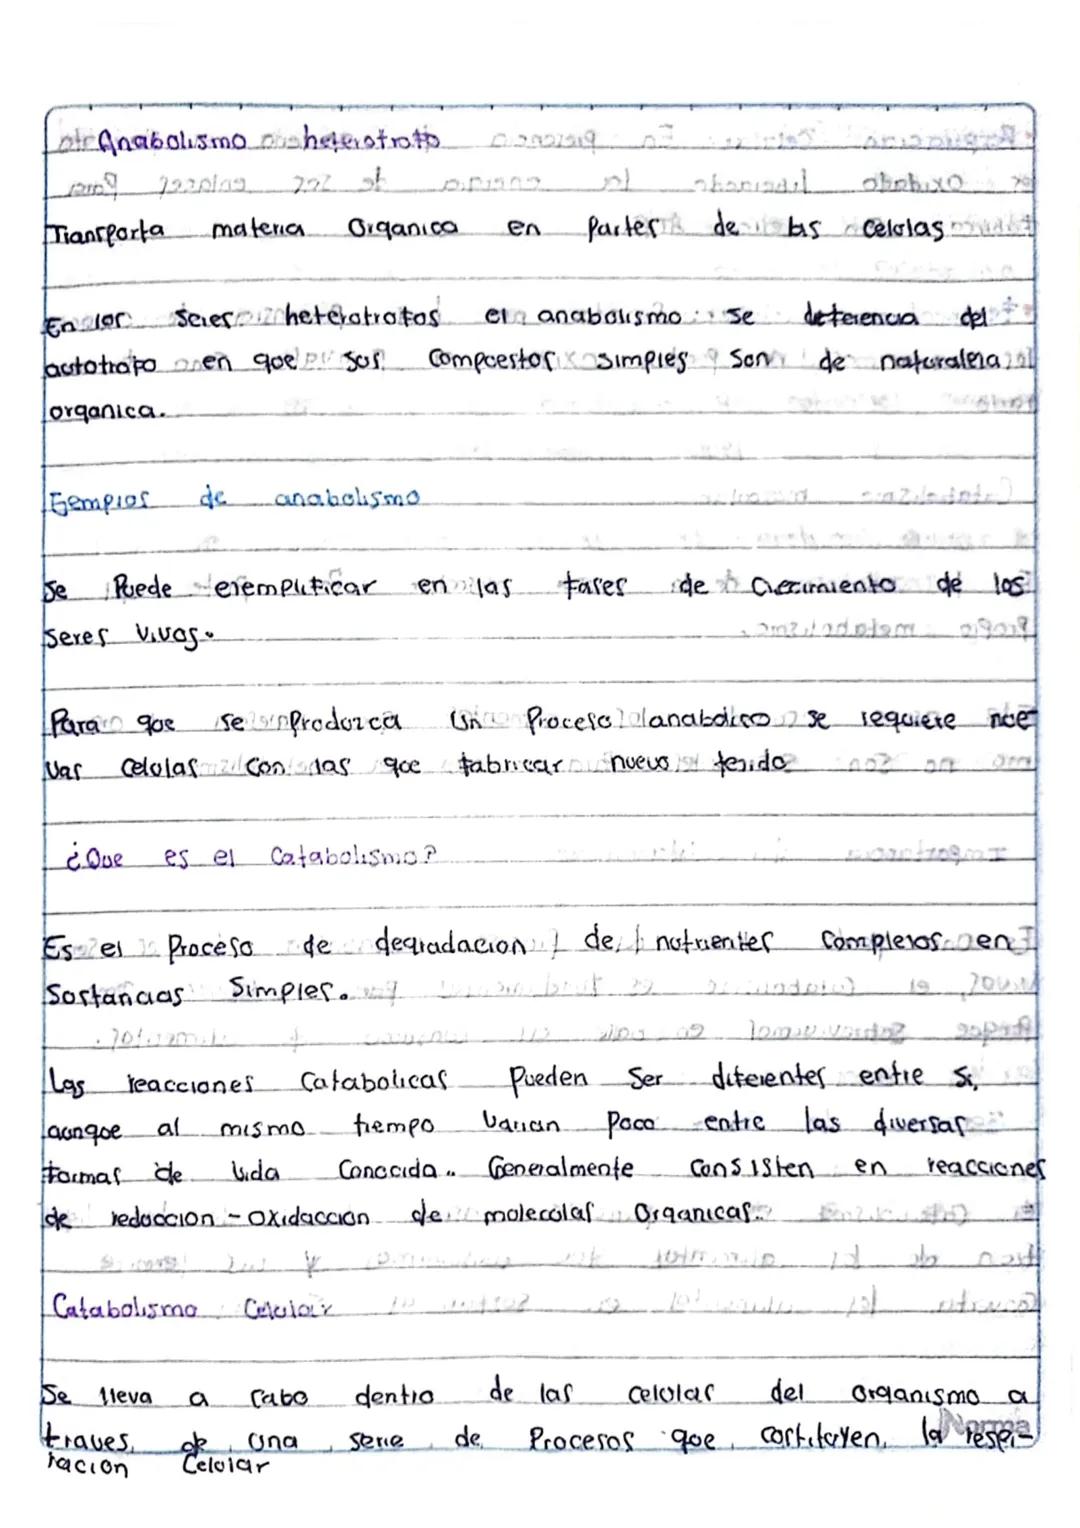 Anabolismo heterotrofo
Transporta materia Organica en Partes de las Celulas
En los Seres heterotrofos el anabolismo se deferencia del
autotrofo en que sus Compuestos simples Son de naturaleza
organica.
Ejemplos de anabolismo
Se Puede ejemplificar en las fases de Crecimiento de los
Seres Vivos.
Para que se Produzca Un Proceso anabolico se requiere nue
Vas Celulas Con las que fabricar nuevo tejido
¿Que es el Catabolismo?
Es el Proceso de degradacion de nutrientes Complejos en
Sustancias Simples.
Las reacciones Catabolicas Pueden Ser diferentes entre Si,
aunque al mismo tiempo Varian Poco entre las diversas
formas de Vida Conocida. Generalmente Consisten en reacciones
de reduccion - Oxidaccion de moleculas Organicas.
Catabolismo Celular
Se lleva a Cabo dentro de las celulas del Organismo a
traves de una serie de Procesos que constituyen la respi-
racion Celular
Norma